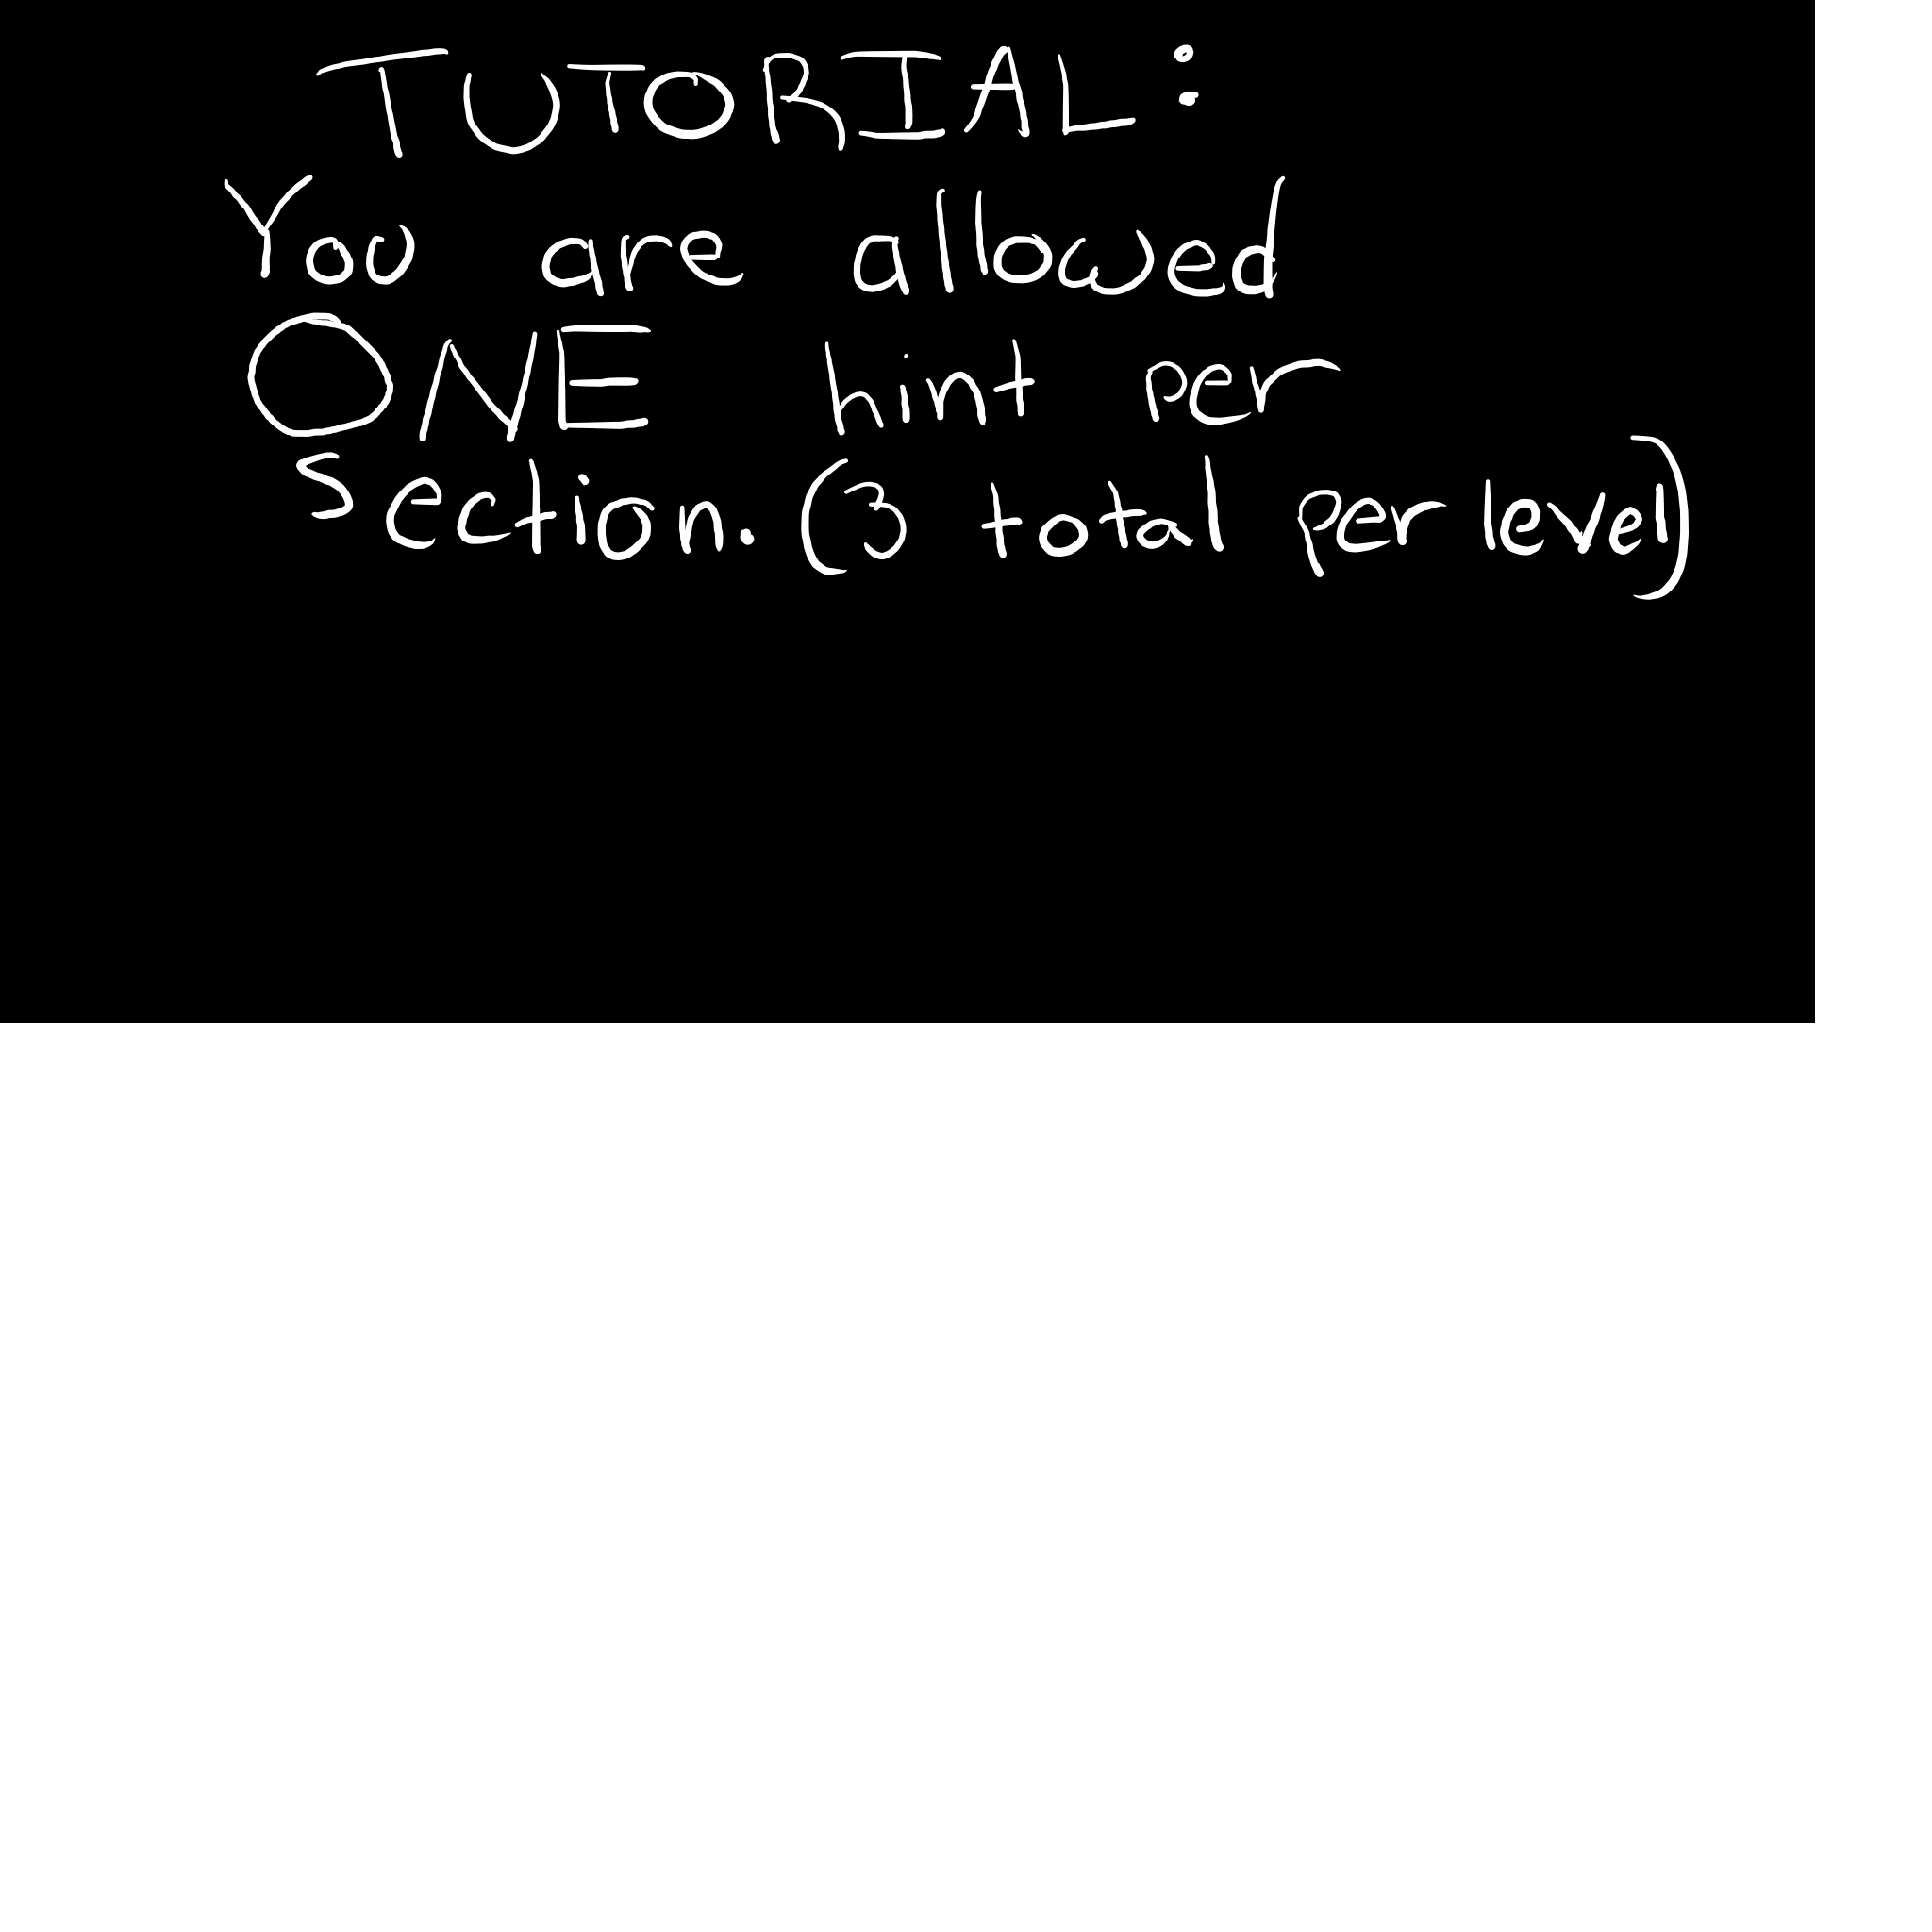 TUTORIAL:
You are allowed
ONE hint per
Section. (3 total per level)